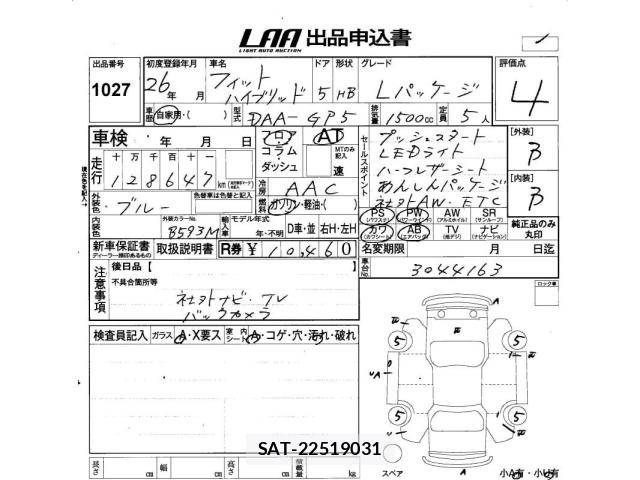 LAA 出品申込書
LIGHT AUTO AUCTION
出品番号 初度登録年月 車名 ドア 形状 グレード 評価点
1027 26年 月 フィット ハイブリッド 5 HB Lパッケージ 4
車歴 自家用・( ) 型式 DAA-GP5 排気量 1500cc 定員 5人
車検 年 月 日 フロア AT
コラム・ダッシュ MTのみ記入 速
セールスポイント
プッシュスタート
LEDライト
ハーフレザーシート
あんしんパッケージ
社外AW・ETC
[外装] B
[内装] B
走行 十 万 千 百 十 一
128647 km
冷房 AAC
外装色 ブルー 色替車は色替と記入
燃料 ガソリン・軽油・( )
外装カラーNo. B593M
輸入車 モデル年式 年・不明 D車・並 右H・左H
PS (パワステ) PW (パワーウインド) AW (アルミホイル) SR (サンルーフ)
カワ (カワシート) AB (エアバッグ) TV (地デジ) ナビ (ナビゲーション)
純正品のみ丸印
新車保証書 ディーラー捺印あるもの 取扱説明書 R券 ¥10,460
名変期限 月 日迄
車台No. 3044163
注意事項
後日品【 】
不具合箇所等
社外ナビ・TV
バックカメラ
ロック車
検査員記入 ガラス A・X要ス 室内シート A・コゲ・穴・汚れ・破れ
A
5 5
5 5
A
SAT-22519031
長さ cm 幅 cm 高さ cm 積載量 kg
スペア
小A有・小U有